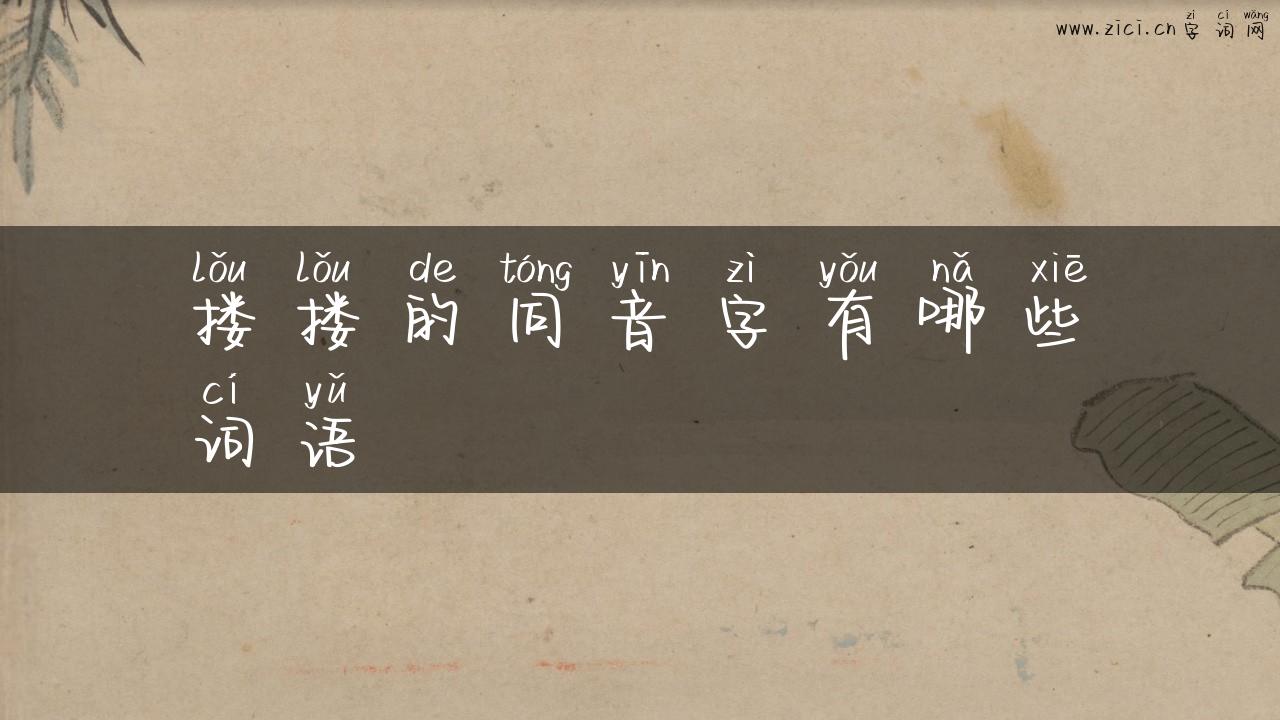 zì cí wǎng
www.zici.cn 字词网
lǒu lǒu de tóng yīn zì yǒu nǎ xiē
搂搂的同音字有哪些
cí yǔ
词语